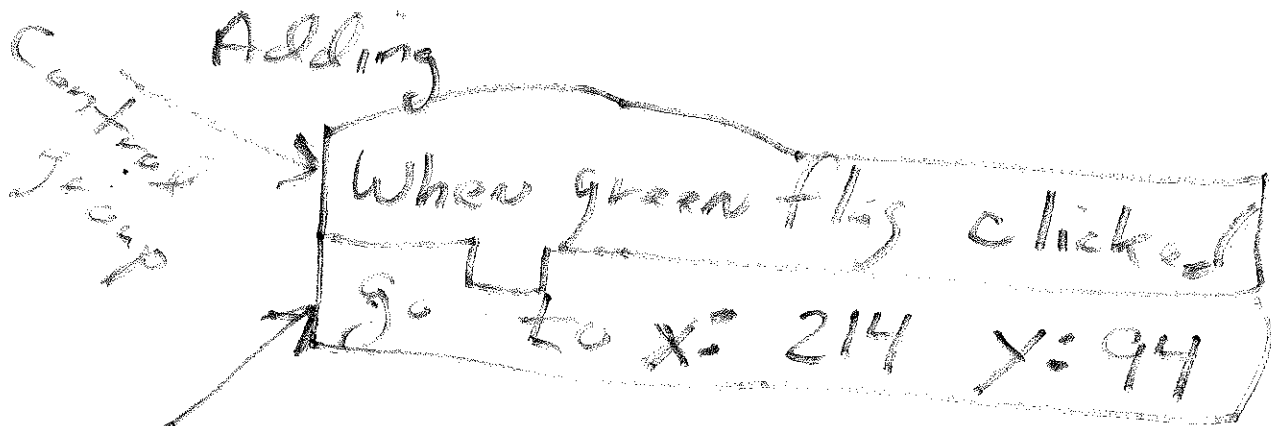 Adding
Control
group
When green flag clicked
go to x: 214 y: 94